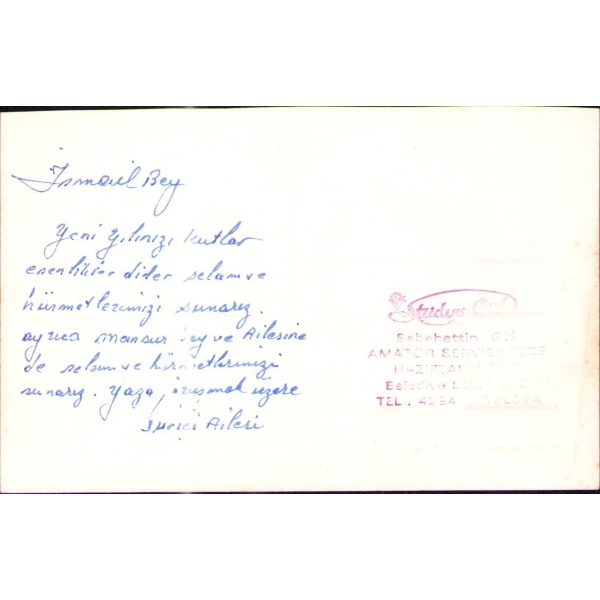 İsmail Bey
Yeni Yılınızı kutlar
esenlikler diler selam ve
hürmetlerimizi sunarız.
ayrıca mansur bey ve Ailesine
de selam ve hürmetlerimizi
sunarız. Yaza görüşmek üzere
Ailesi
Studyo Gül
Sabahattin Gül
AMATÖR SERVİS
Belediye
TEL. 4294 YALOVA